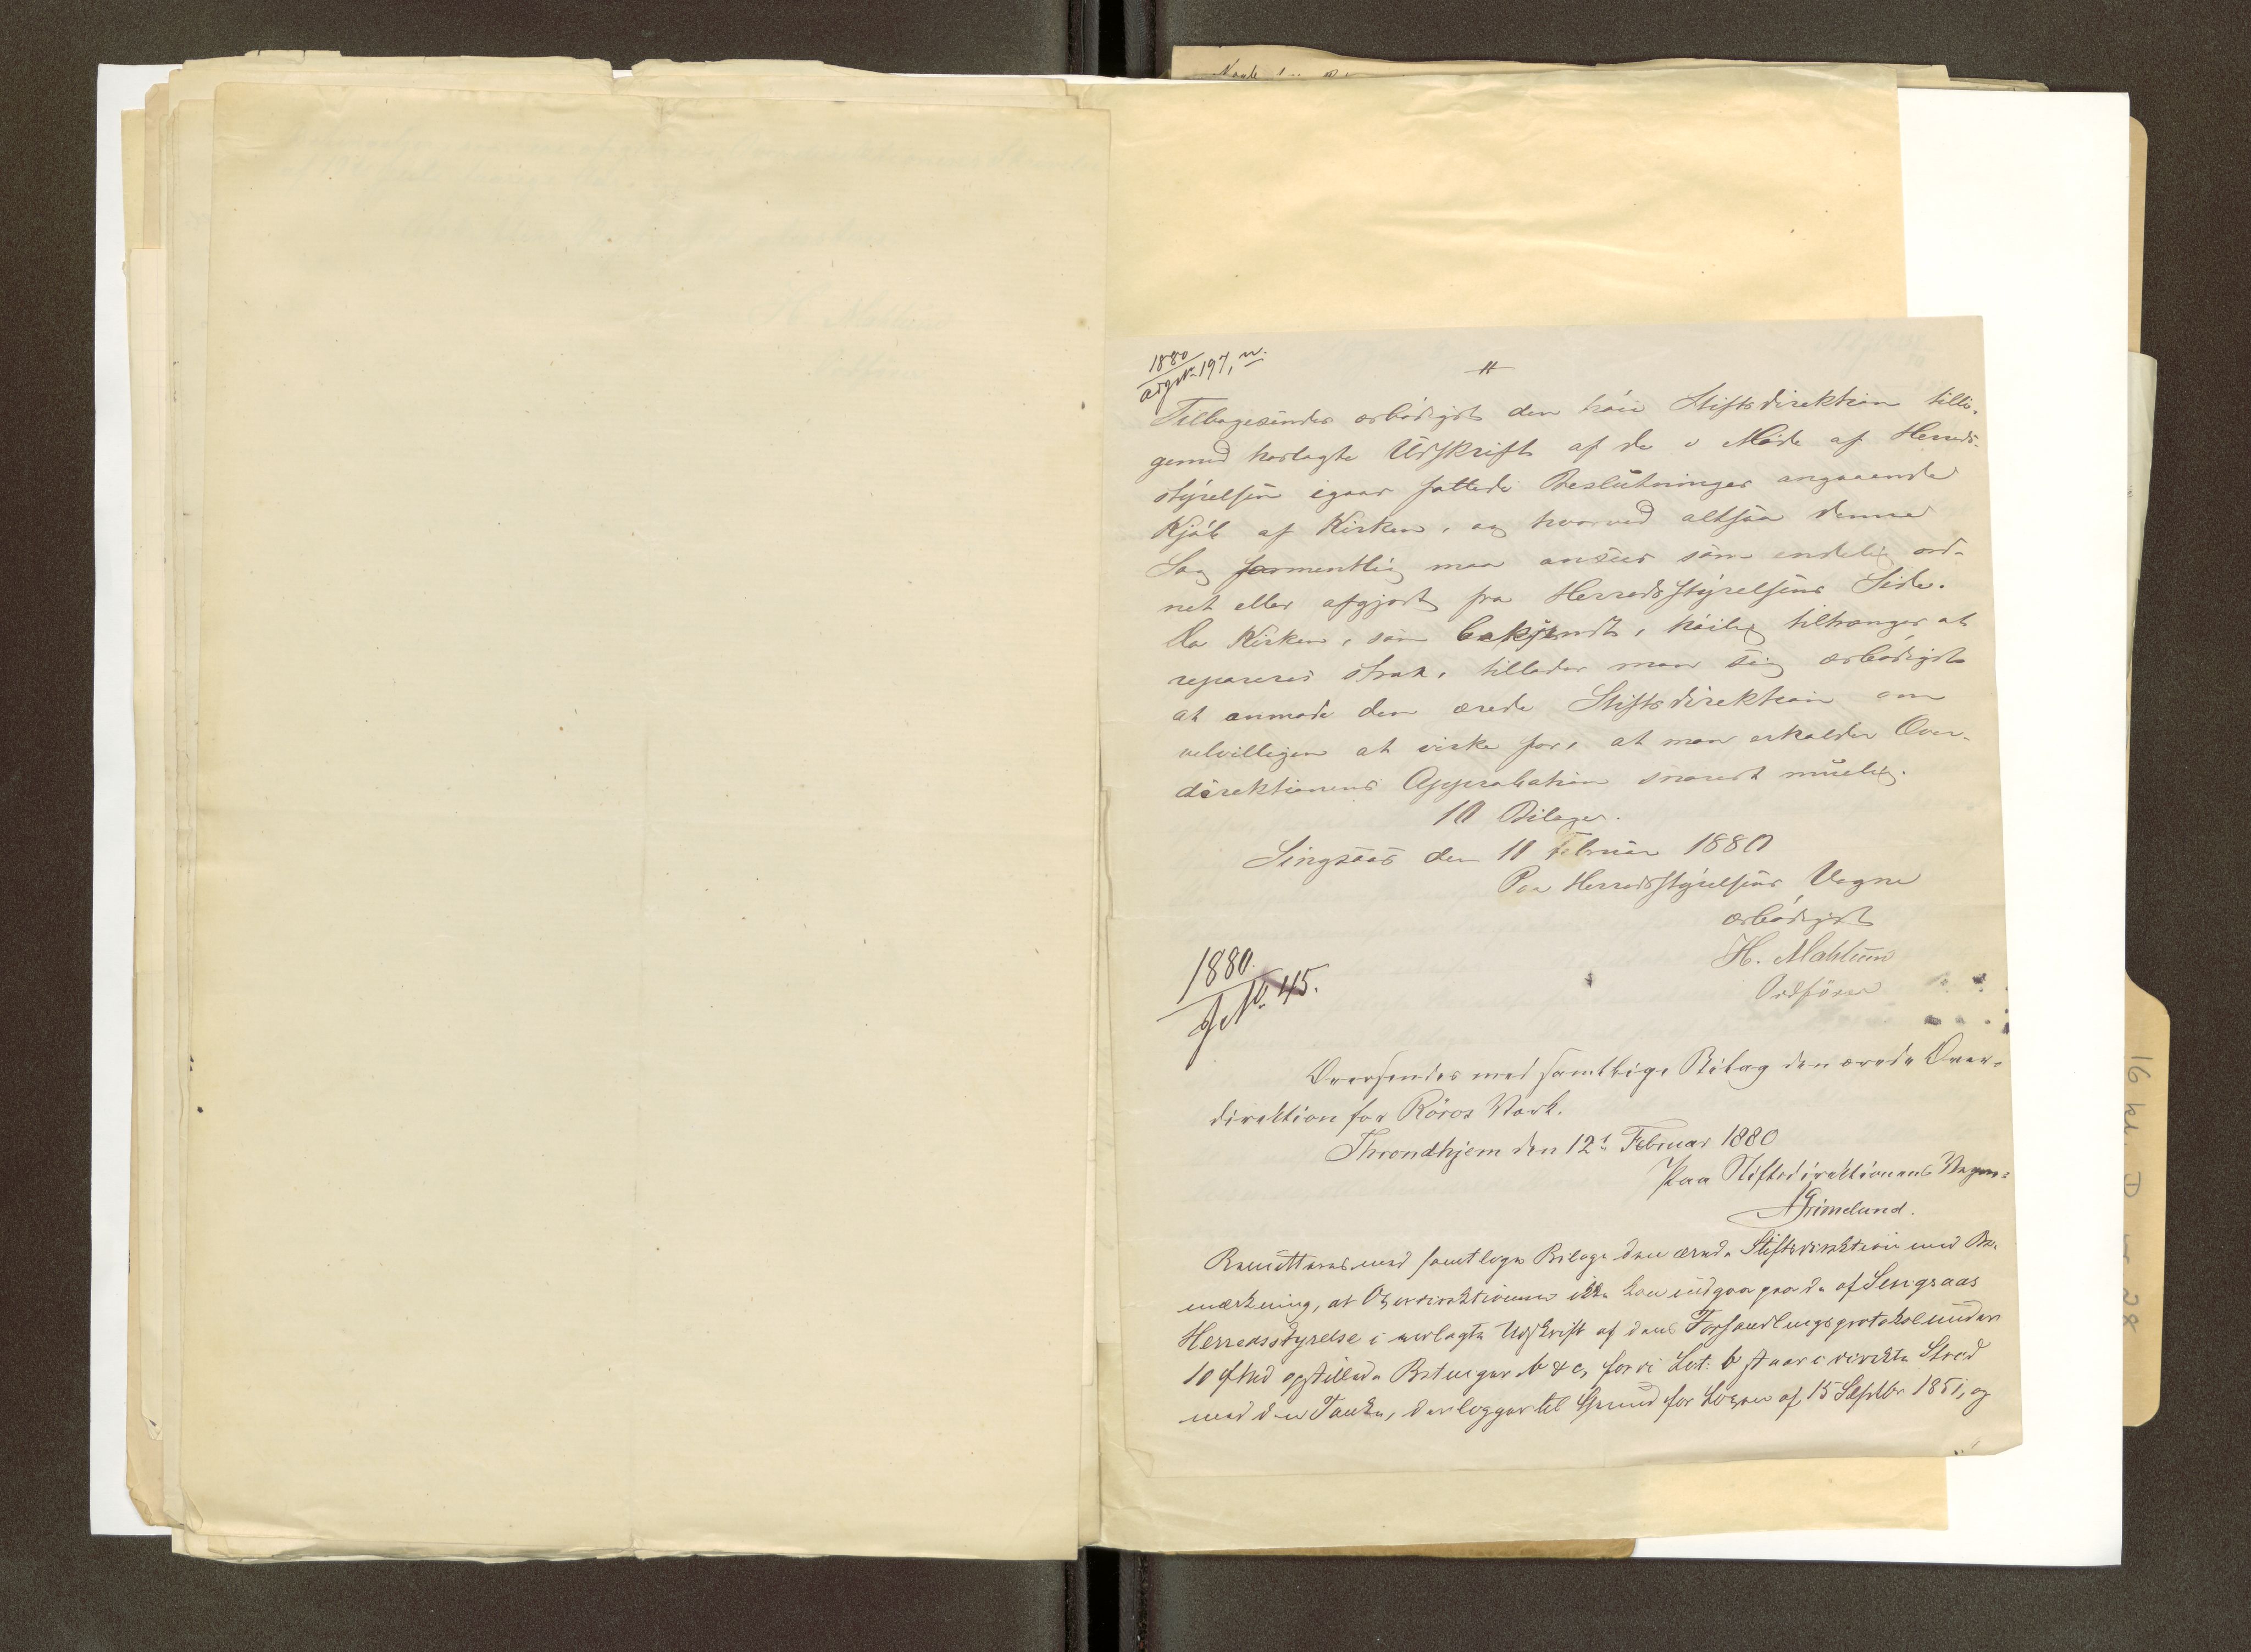 1880
adgst. 197, n.
#
Tilbagesendes ærbödigst den höie Stiftsdirektion tilli-
gemed hoslagte Udskrift af de i Möde af Herreds-
styrelsen igaar fattede Beslutninger angaaende
Kjöb af Kirken, og hvorved altsaa denne
Sag formentlig maa ansees som endelig ord-
net eller afgjort fra Herredsstyrelsens Side.
Da Kirken, som bekjendt, höilig tiltrænger at
repareres strax, tillader man sig ærbödigst
at anmode den ærede Stiftsdirektion om
velvilligen at virke for, at man erholder Over-
direktionens Approbation snarest muelig.
10 Bilager.
Singsaas den 11 Februar 1880
Paa Herredsstyrelsens Vegne
ærbödigst
H. Mahlum
Ordförer
1880.
J. No. 45.
Oversendes med samtlige Bilag den ærede Over-
direktion for Röros Værk.
Throndhjem den 12te Februar 1880
Paa Stiftsdirektionens Vegne
Grimelund.
Remitteres med samtlige Bilage den ærede Stiftsdirektion med Be-
mærkning, at Overdirektionen ikke kan indgaa paa de af Singsaas
Herredsstyrelse i vedlagte Udskrift af dens Forhandlingsprotokol under
10 dines opstillede Betingelser b & c, fordi Lit: b staar i direkte Strid
med den Tanke, der ligger til Grund for Loven af 15 Septbr 1851, og
16 kl. D
28